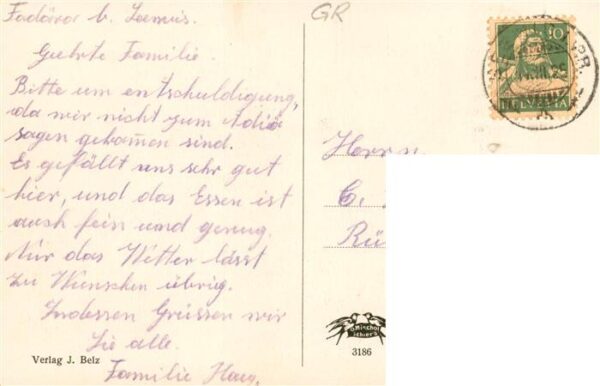 Fadära b. Seewis.
GR
Geehrte Familie.
Bitte um entschuldigung,
da wir nicht zum Adiö
sagen gekom̄en sind.
Es gefällt uns sehr gut
hier, und das Essen ist
auch fein und genug.
Nur das Wetter lässt
zu Wünschen übrig.
Indessen Grüssen wir
Sie alle.
Familie
Verlag J. Belz
10
HELVETIA
Herrn
C.
Rü
3186